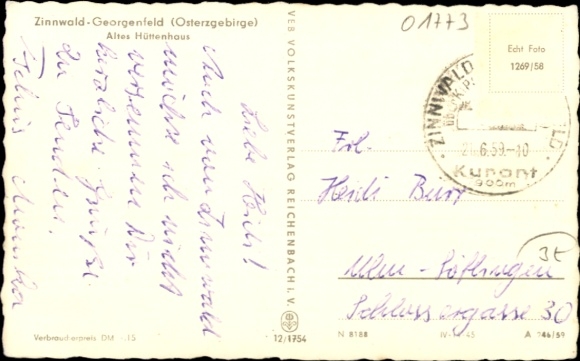 Zinnwald-Georgenfeld (Osterzgebirge)
Altes Hüttenhaus
Liebe Heidi!
Auch von Zinnwald
möchte ich nicht
versäumen Dir
herzliche Grüße
zu senden.
VEB VOLKSKUNSTVERLAG REICHENBACH i. V.
01773
Echt Foto
1269/58
ZINNWALD
6.59.-10
Kurort
900m
Frl.
Heidi Burr
3t
Ulm - Söflingen
Schlossergasse 30
Verbraucherpreis DM -.15
12/1754
N 8188
IV-
45
A
/59